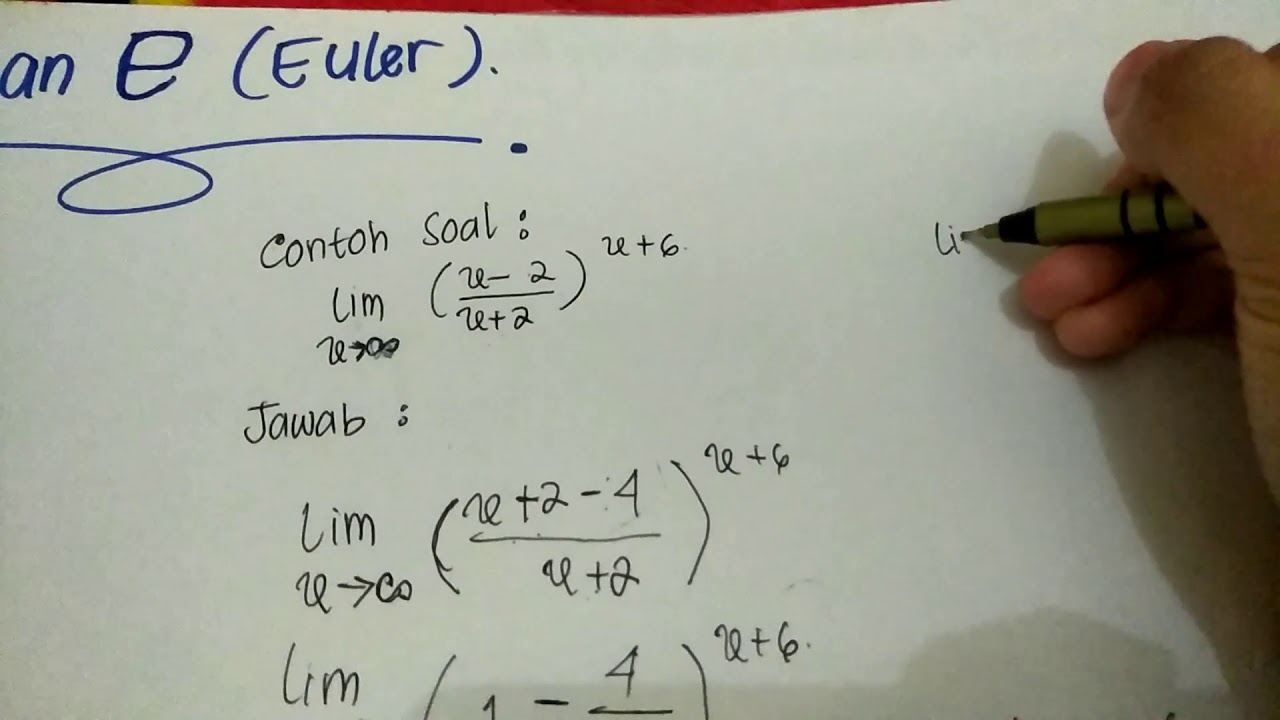 an e (Euler).
Contoh Soal :
lim (x - 2 / x + 2)^x + 6
x→∞
Jawab :
lim (x + 2 - 4 / x + 2)^x + 6
x→∞
lim (1 - 4)^x + 6.
Li